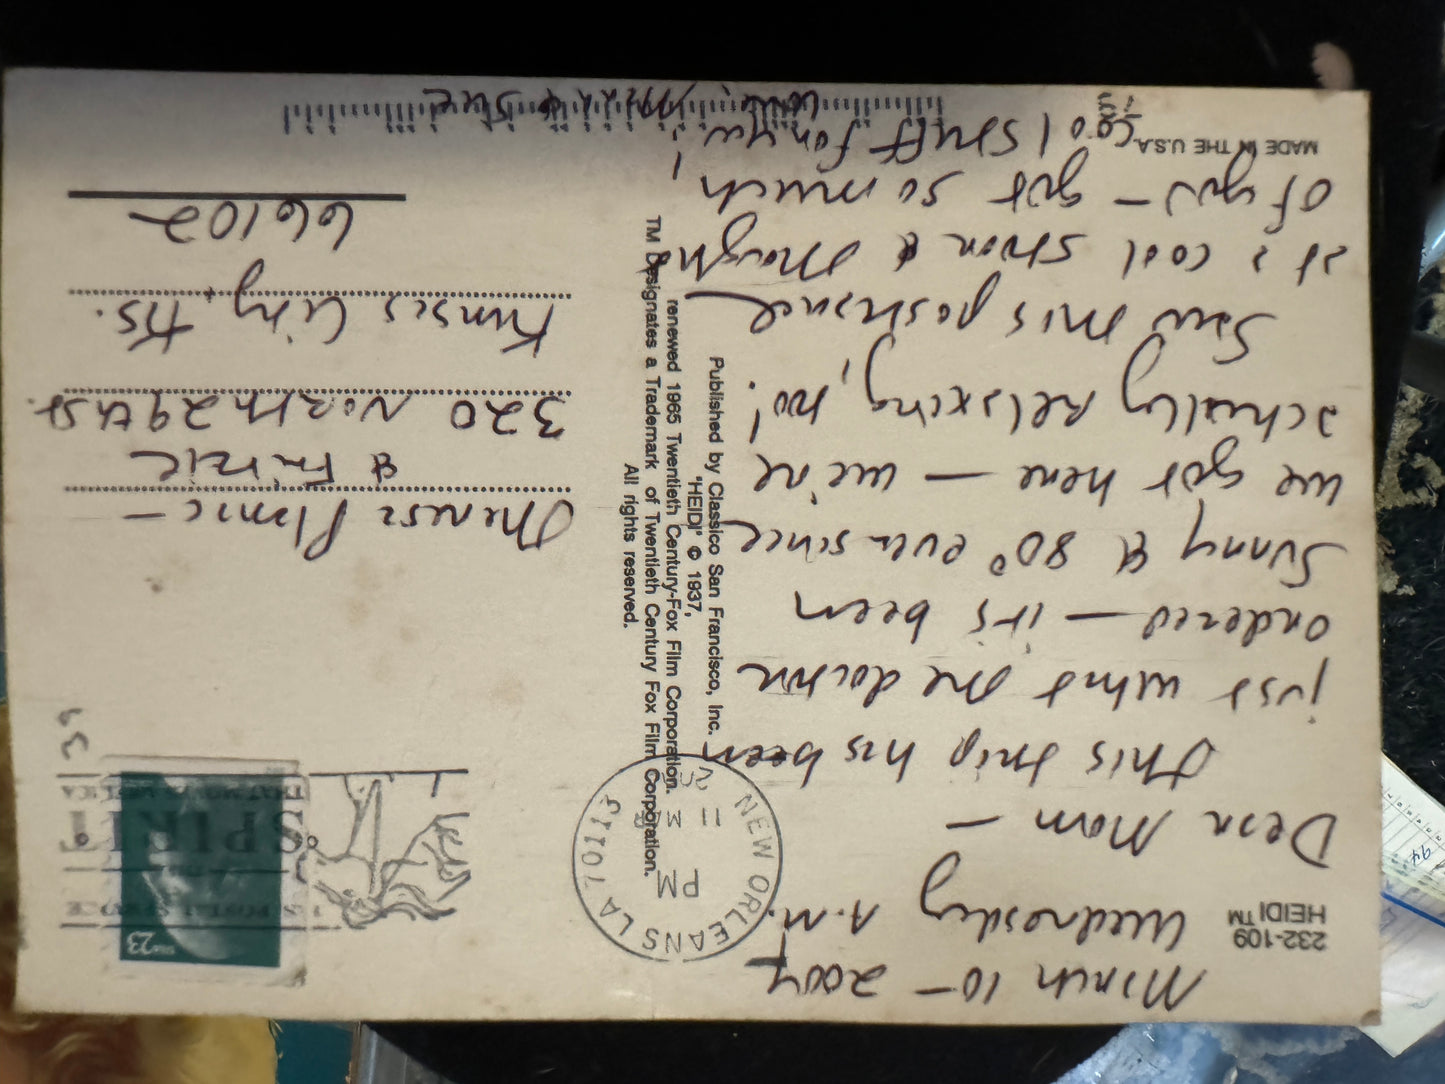 232-109
HEIDI™
March 10 - 2004
Wednesday A.M.
Dear Mom -
This trip has been
just what the doctor
ordered - it's been
Sunny & 80° ever since
we got here - we're
actually relaxing, too!
Saw this postcard
at a cool store & thought
of you - got so much
cool stuff for you!
Love,
& Sue
MADE IN THE U.S.A.
Published by Classico San Francisco, Inc.
"HEIDI" © 1937,
renewed 1965 Twentieth Century-Fox Film Corporation.
TM Designates a Trademark of Twentieth Century Fox Film Corporation.
All rights reserved.
NEW ORLEANS LA 70113
PM
11 MAR
SPIRIT
THAT MOVES AMERICA
U.S. POSTAL SERVICE
USA 23
38
& Fritzie
320 North 29th St.
Kansas City, KS.
66102
94